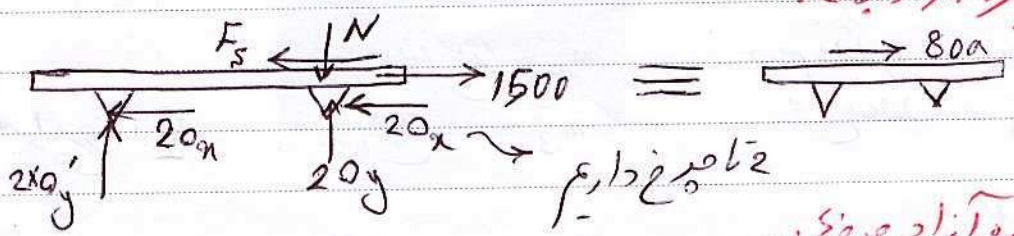 F_s N 1500 ≡ 80a
2O_x 2O_x
2×O'_y 2O_y ۲ تا چرخ داریم